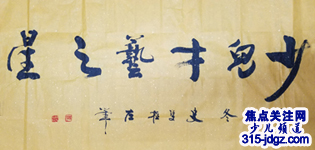 少儿才藝之星
焦点关注网
少儿频道
315-jdgz.com